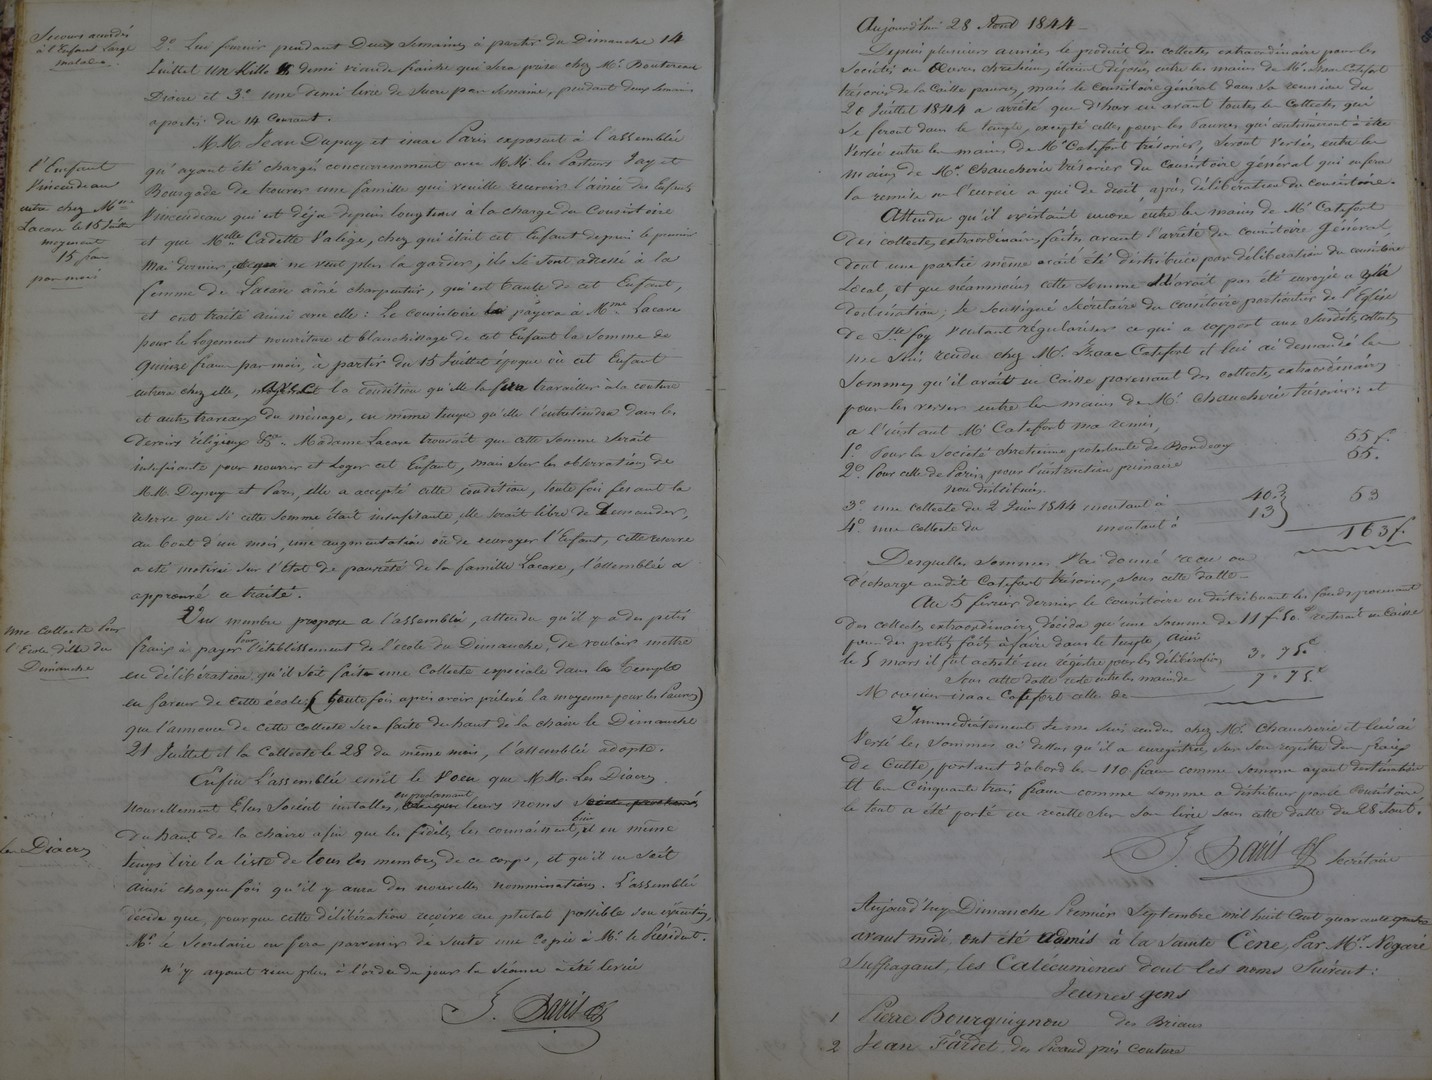 Secours accordés
à l'Enfant Large
malade.
2.° Lui fournir pendant Deux Semaines à partir du Dimanche 14
Juillet un Kilo & demi viande fraiche qui Sera prise chez Mr. Boutereau
Diacre et 3.° une demi livre de Sucre par Semaine, pendant deux Semaines
à partir du 14 Courant.
MM. Jean Dupuy et isaac Paris exposent à l'assemblée
l'Enfant
Vincendeau
entre chez Mme
Lacave le 15 Juillet
moyennant
15 fran
par mois
qu'ayant été chargés concurremment avec MM. les Pasteurs Jay et
Bourgade de trouver une famille qui veuille recevoir l'ainée des Enfants
Vincendeau qui est déja depuis longtems à la charge du Consistoire
et que Melle Cadette Valège, chez qui était cet Enfant depuis le premier
mai dernier, ne veut plus la garder, ils se sont adressé à la
femme de Lacave ainé charpentier, qui est tante de cet Enfant,
et ont traité ainsi avec elle: Le Consistoire payera à Mme Lacave
pour le logement nourriture et blanchissage de cet Enfant la Somme de
Quinze francs par mois, à partir du 15 Juillet époque où cet Enfant
entrera chez elle, la condition qu'elle la fera travailler à la couture
et autres travaux du ménage, en même temps qu'elle l'entretiendra dans les
devoirs religieux &a. Madame Lacave trouvait que cette Somme serait
insufisante pour nourrir et loger cet Enfant, mais sur les observations de
MM. Dupuy et Paris, elle a accepté cette condition, toute fois fesant la
réserve que Si cette Somme était insufisante, elle serait libre de Demander,
au bout d'un mois, une augmentation ou de renvoyer l'Enfant, cette réserve
a été motivée sur l'état de pauvreté de la famille Lacave, l'assemblée a
approuvé ce traité.
Une Collecte Pour
l'Ecole dite du
Dimanche
Un membre propose a l'assemblée, attendu qu'il y a des petits
frais à payer Pour l'établissement de l'école du Dimanche, de vouloir mettre
en délibération, qu'il soit faite une Collecte especiale dans le Temple
en faveur de cette école; (toute fois après avoir prélevé la moyenne pour les Pauvres)
que l'annonce de cette Collecte sera faite du haut de la chaire le Dimanche
21 Juillet et la Collecte le 28 du même mois, l'assemblée adopte.
Enfin L'assemblée émet le Voeu que MM. Les Diacres
nouvellement Elus Soient installés, en proclamant leurs noms
les Diacres
du haut de la chaire afin que les fidèles les connaissent, et en même
temps lire la liste de tous les membres de ce corps, et qu'il en soit
ainsi chaque fois qu'il y aura des nouvelles nominations. L'assemblée
décide que, pourque cette délibération reçoive au plutot possible son exécution,
Mr. le Secrétaire en fera parvenir de suite une copie à Mr. le Président.
n'y ayant rien plus à l'ordre du jour la Séance a été levée
I. Paris
Aujourd'hui 28 Aout 1844 -
Depuis plusieurs années, le produit des collectes extraordinaires pour les
Sociétés ou Oeuvres chrétiennes, étaient déposées entre les mains de Mr. isaac Catefort
trésorier de la Caisse pauvres, mais le Consistoire général dans sa réunion du
26 Juillet 1844 a arrêté que d'hors en avant toutes les Collectes qui
se feront dans le temple, excepté celles pour les Pauvres qui continueront à être
Versée entre les mains de Mr. Catefort trésorier, seront Versées entre les
mains de Mr. Chaucherie trésorier du Consistoire général qui en fera
la remise ou l'envoie a qui de droit, après délibération du consistoire.
Attendu qu'il existait encore entre les mains de Mr Catefort
des collectes extraordinaires faites avant l'arrêté du consistoire Général,
dont une partie même avait été distribuée par délibération du consistoire
Local, et que néanmoins cette Somme n'avait pas été envoyée a sa
destination; Je Soussigné Secrétaire du consistoire particulier de l'Eglise
de Ste foy voulant régulariser ce qui a rapport aux Susdites collectes
me Suis rendu chez Mr. Isaac Catefort et lui ai demandé les
Sommes qu'il avait en Caisse provenant des collectes extraordinaires
pour les verser entre les mains de Mr. Chaucherie trésorier; et
a l'instant Mr Catefort m'a remis,
1.° Pour la Société chretienne protestante de Bordeaux 55 f.
2.° Pour celle de Paris, pour l'instruction primaire 55.
non distribuées.
3.° une collecte du 2 Juin 1844 montant à 40.
4.° une collecte du montant à 13 } 53
163 f.
Desquelles Sommes J'ai donné reçu ou
décharge audit Catefort trésorier, Sous cette datte -
Au 5 février dernier le consistoire en distribuant les fonds provenant
des collectes extraordinaires, décida que une Somme de 11 f 50 c resterait en caisse
pour des petits frais à faire dans le temple, ainsi
le 5 mars il fut acheté un régistre pour les délibérations 3. 75 c
Sous cette datte reste entre les mains de
Monsieur isaac Catefort celle de 7. 75 c
Immédiatement Je me Suis rendu chez Mr. Chaucherie et lui ai
Versé les Sommes ci dessus qu'il a enregistrées sur son registre des frais
de Culte, portant d'abord les 110 francs comme Somme ayant destination
et les Cinquante trois francs comme Somme a distribuer par le Consistoire
le tout a été porté en recette sur son livre sous cette datte du 28 Aout.
I. Paris Secrétaire
Aujourd'huy Dimanche Premier Septembre mil huit Cent quarante quatre
avant midi, ont été admis à la Sainte Cène, Par Mr. Nogaré
Suffragant, les Catécumènes dont les noms Suivent:
Jeunes gens
1 Pierre Bourguignon des Briaux
2 Jean Fardet, des Picaud près Couture